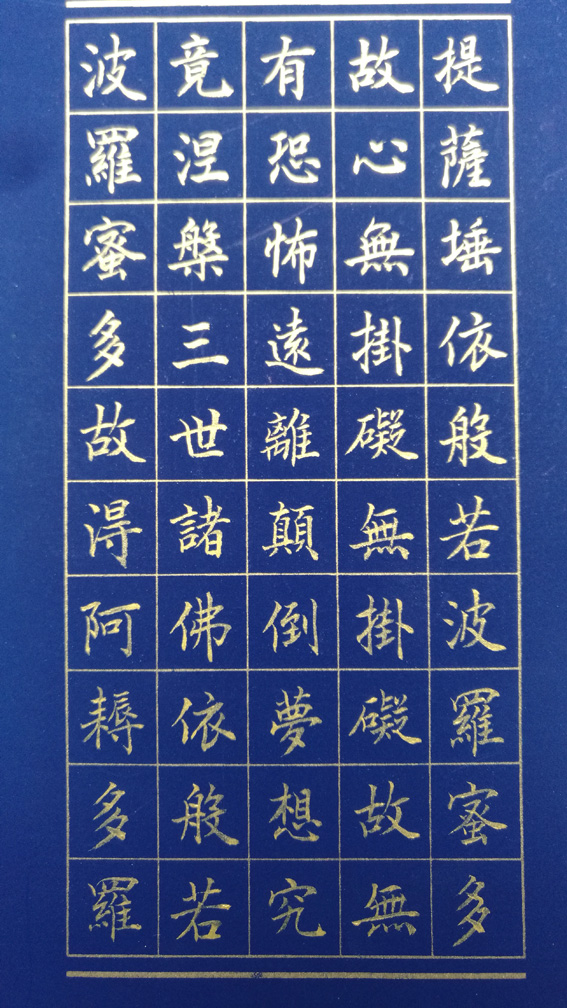 提薩埵依般若波羅蜜多
故心無掛礙無掛礙故無
有恐怖遠離顛倒夢想究
竟涅槃三世諸佛依般若
波羅蜜多故得阿耨多羅